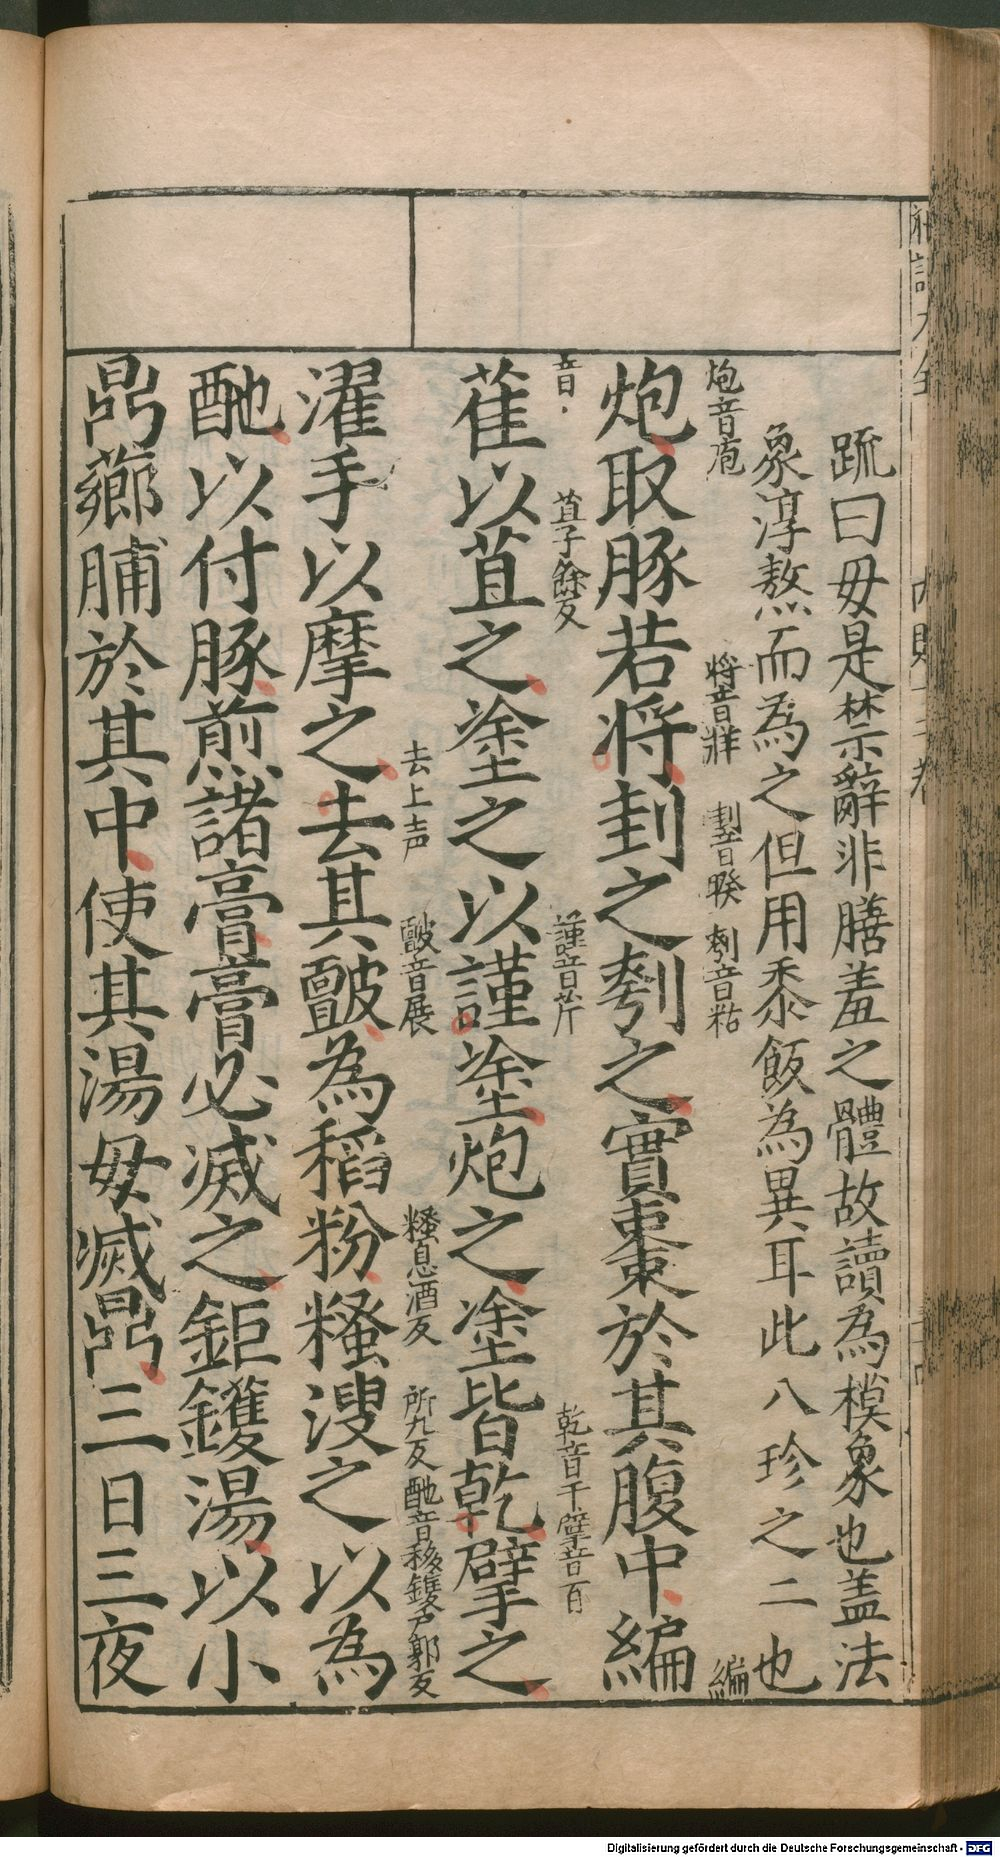 疏曰毋是禁辭非膳羞之體故讀為模象也蓋法
象淳熬而為之但用黍飯為異耳此八珍之二也
炮音庖 將音牂 刲音睽 刳音枯 編
炮取豚若將刲之刳之實棗於其腹中編
音 苴子餘反 謹音芹 乾音干擘音百
萑以苴之塗之以謹塗炮之塗皆乾擘之
濯手以摩之去其皽為稻粉糔溲之以為
去上声 皽音展 糔息酒反 所九反 酏音移鑊戸郭反
酏以付豚煎諸膏膏必滅之鉅鑊湯以小
鼎薌脯於其中使其湯毋滅鼎三日三夜
Digitalisierung gefördert durch die Deutsche Forschungsgemeinschaft - DFG